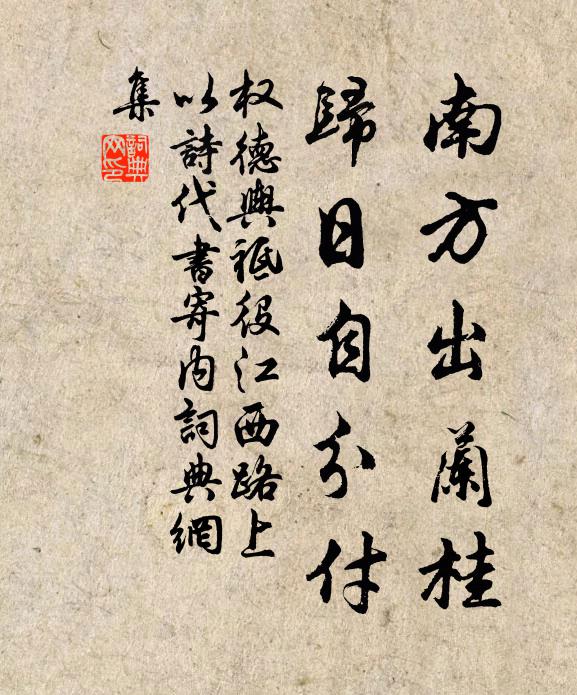 南方出蘭桂
歸日自分付
权德輿祗役江西路上
以詩代書寄内詞典網
集
詞典
网印